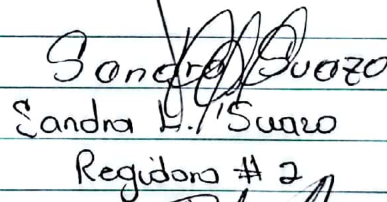 Sandra Suazo
Sandra H. Suazo
Regidora # 2